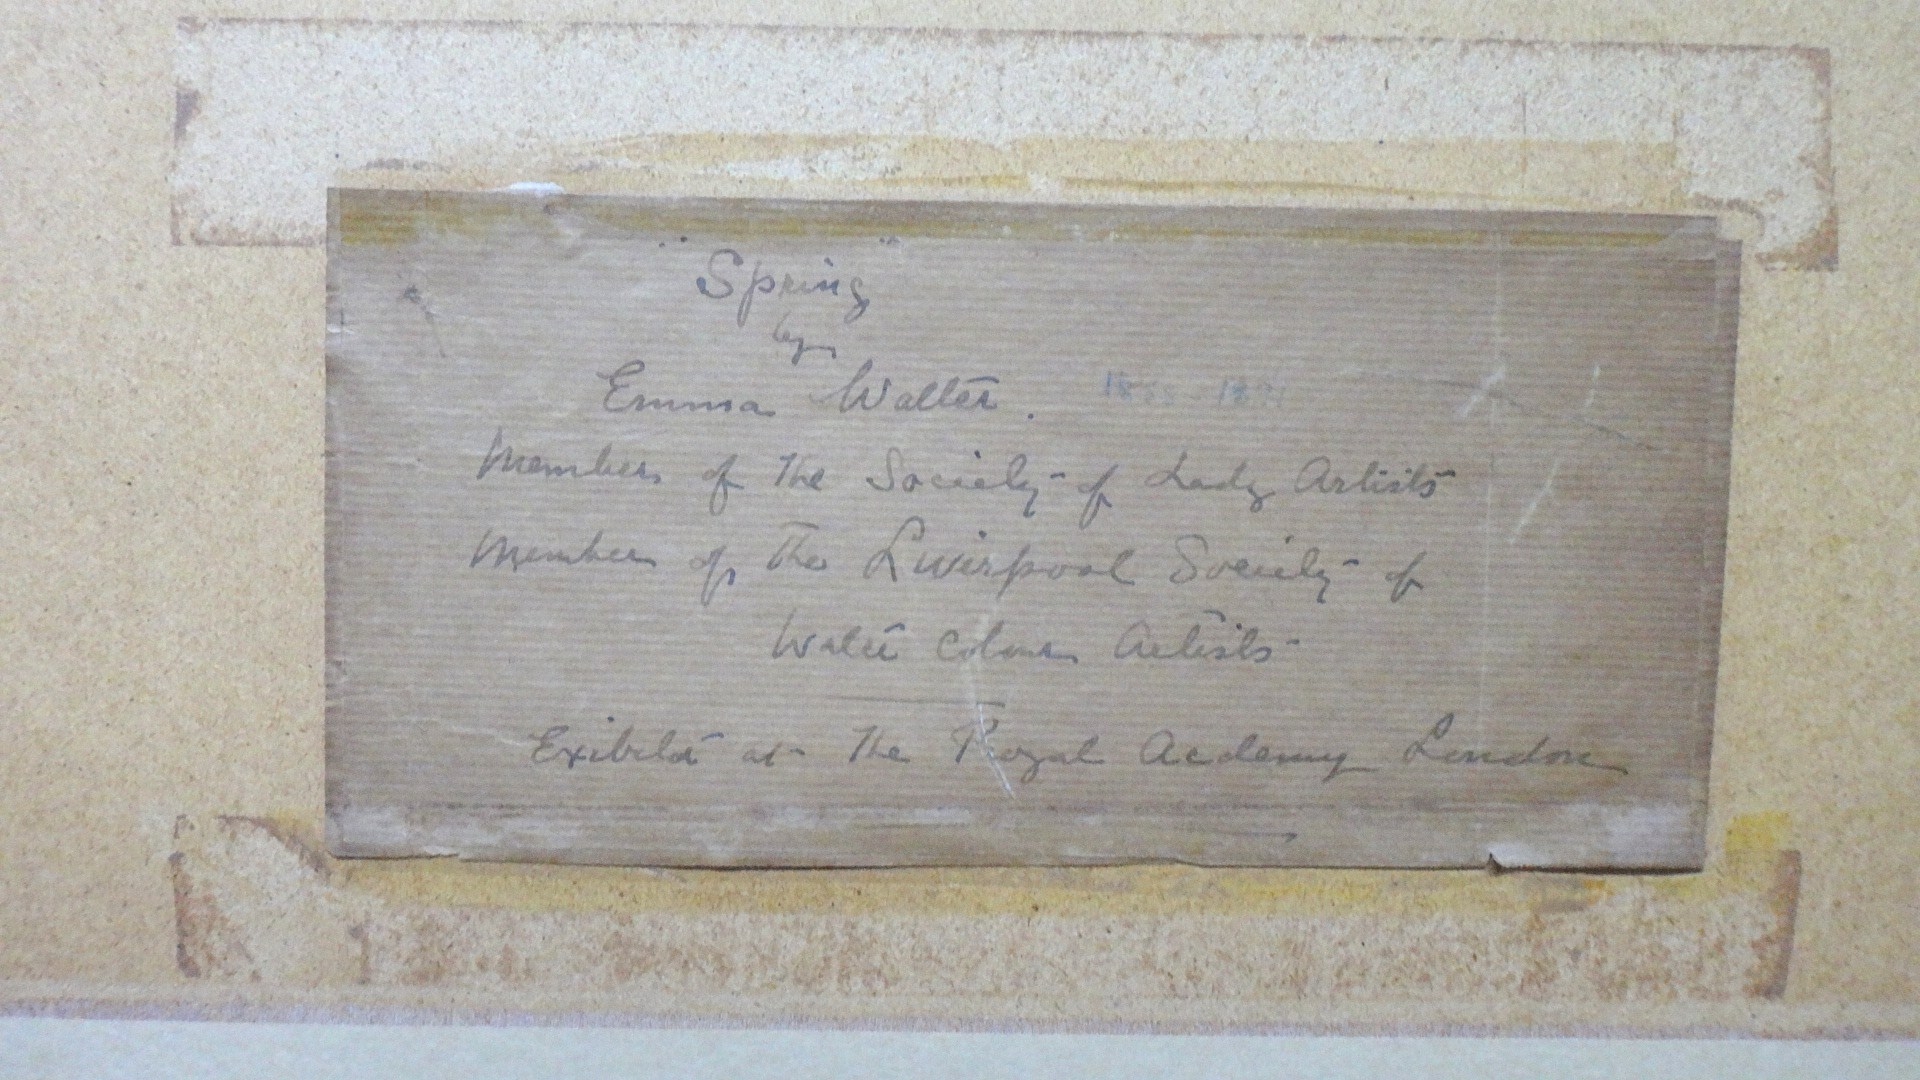 "Spring"
by
Emma Walter.
Member of The Society of Lady Artists
Member of The Liverpool Society of
Water Colour Artists
Exibited at The Royal Acdemy London